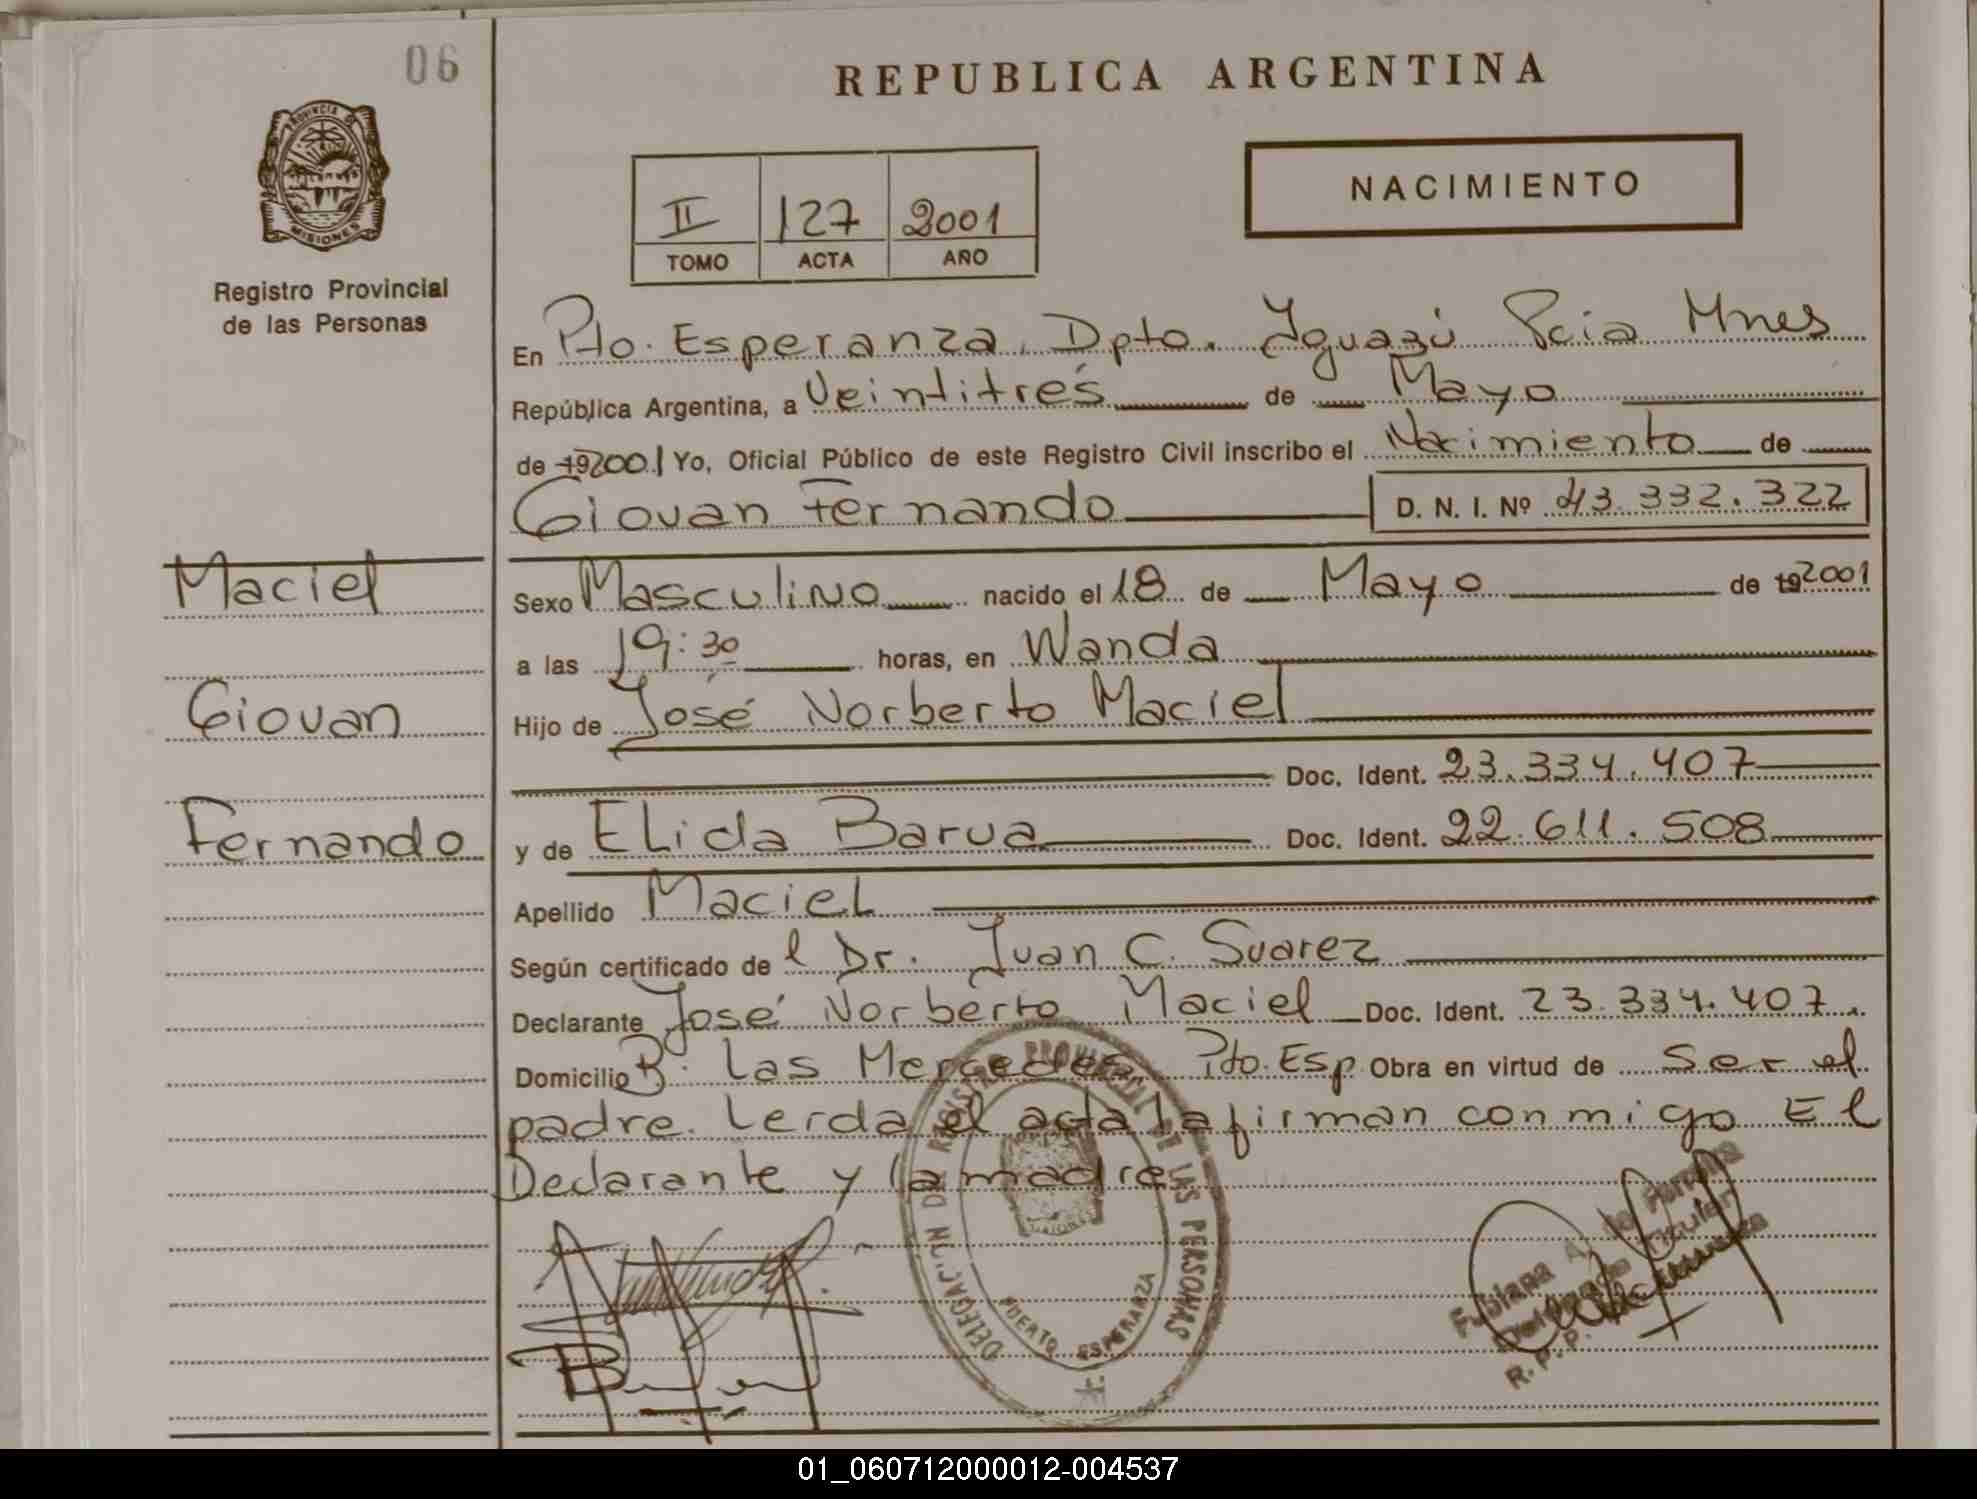 06
REPUBLICA ARGENTINA
PROVINCIA DE
MISIONES
NACIMIENTO
II 127 2001
TOMO ACTA AÑO
Registro Provincial
de las Personas
En Pto. Esperanza, Dpto. Iguazú Pcia Mnes
República Argentina, a Veintitrés de Mayo
de 192001 Yo, Oficial Público de este Registro Civil inscribo el Nacimiento de
Giovan Fernando D. N. I. Nº 43.332.322
Maciel
Giovan
Fernando
Sexo Masculino nacido el 18 de Mayo de 192001
a las 19:30 horas, en Wanda
Hijo de José Norberto Maciel
Doc. Ident. 23.334.407
y de Elida Barua Doc. Ident. 22.611.508
Apellido Maciel
Según certificado de l Dr. Juan C. Suarez
Declarante José Norberto Maciel Doc. Ident. 23.334.407.
Domicilio B. Las Mercedes Pto. Esp Obra en virtud de ser el
padre. Leida el acta la firman conmigo El
Declarante y la madre
DELEGACION DE LAS PERSONAS
PUERTO ESPERANZA
Fabiana A. de
R. P. P.
01_060712000012-004537